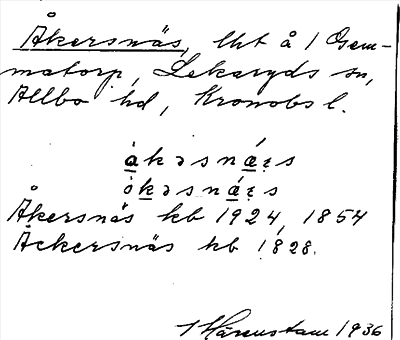 Åkersnäs, lht å 1 Osem-
matorp, Lekaryds sn,
Allbo hd, Kronobs l.
åkəsnǽꞛs
ókəsnǽꞛs
Åkersnäs kb 1924, 1854
Åckersnäs kb 1828.
1936